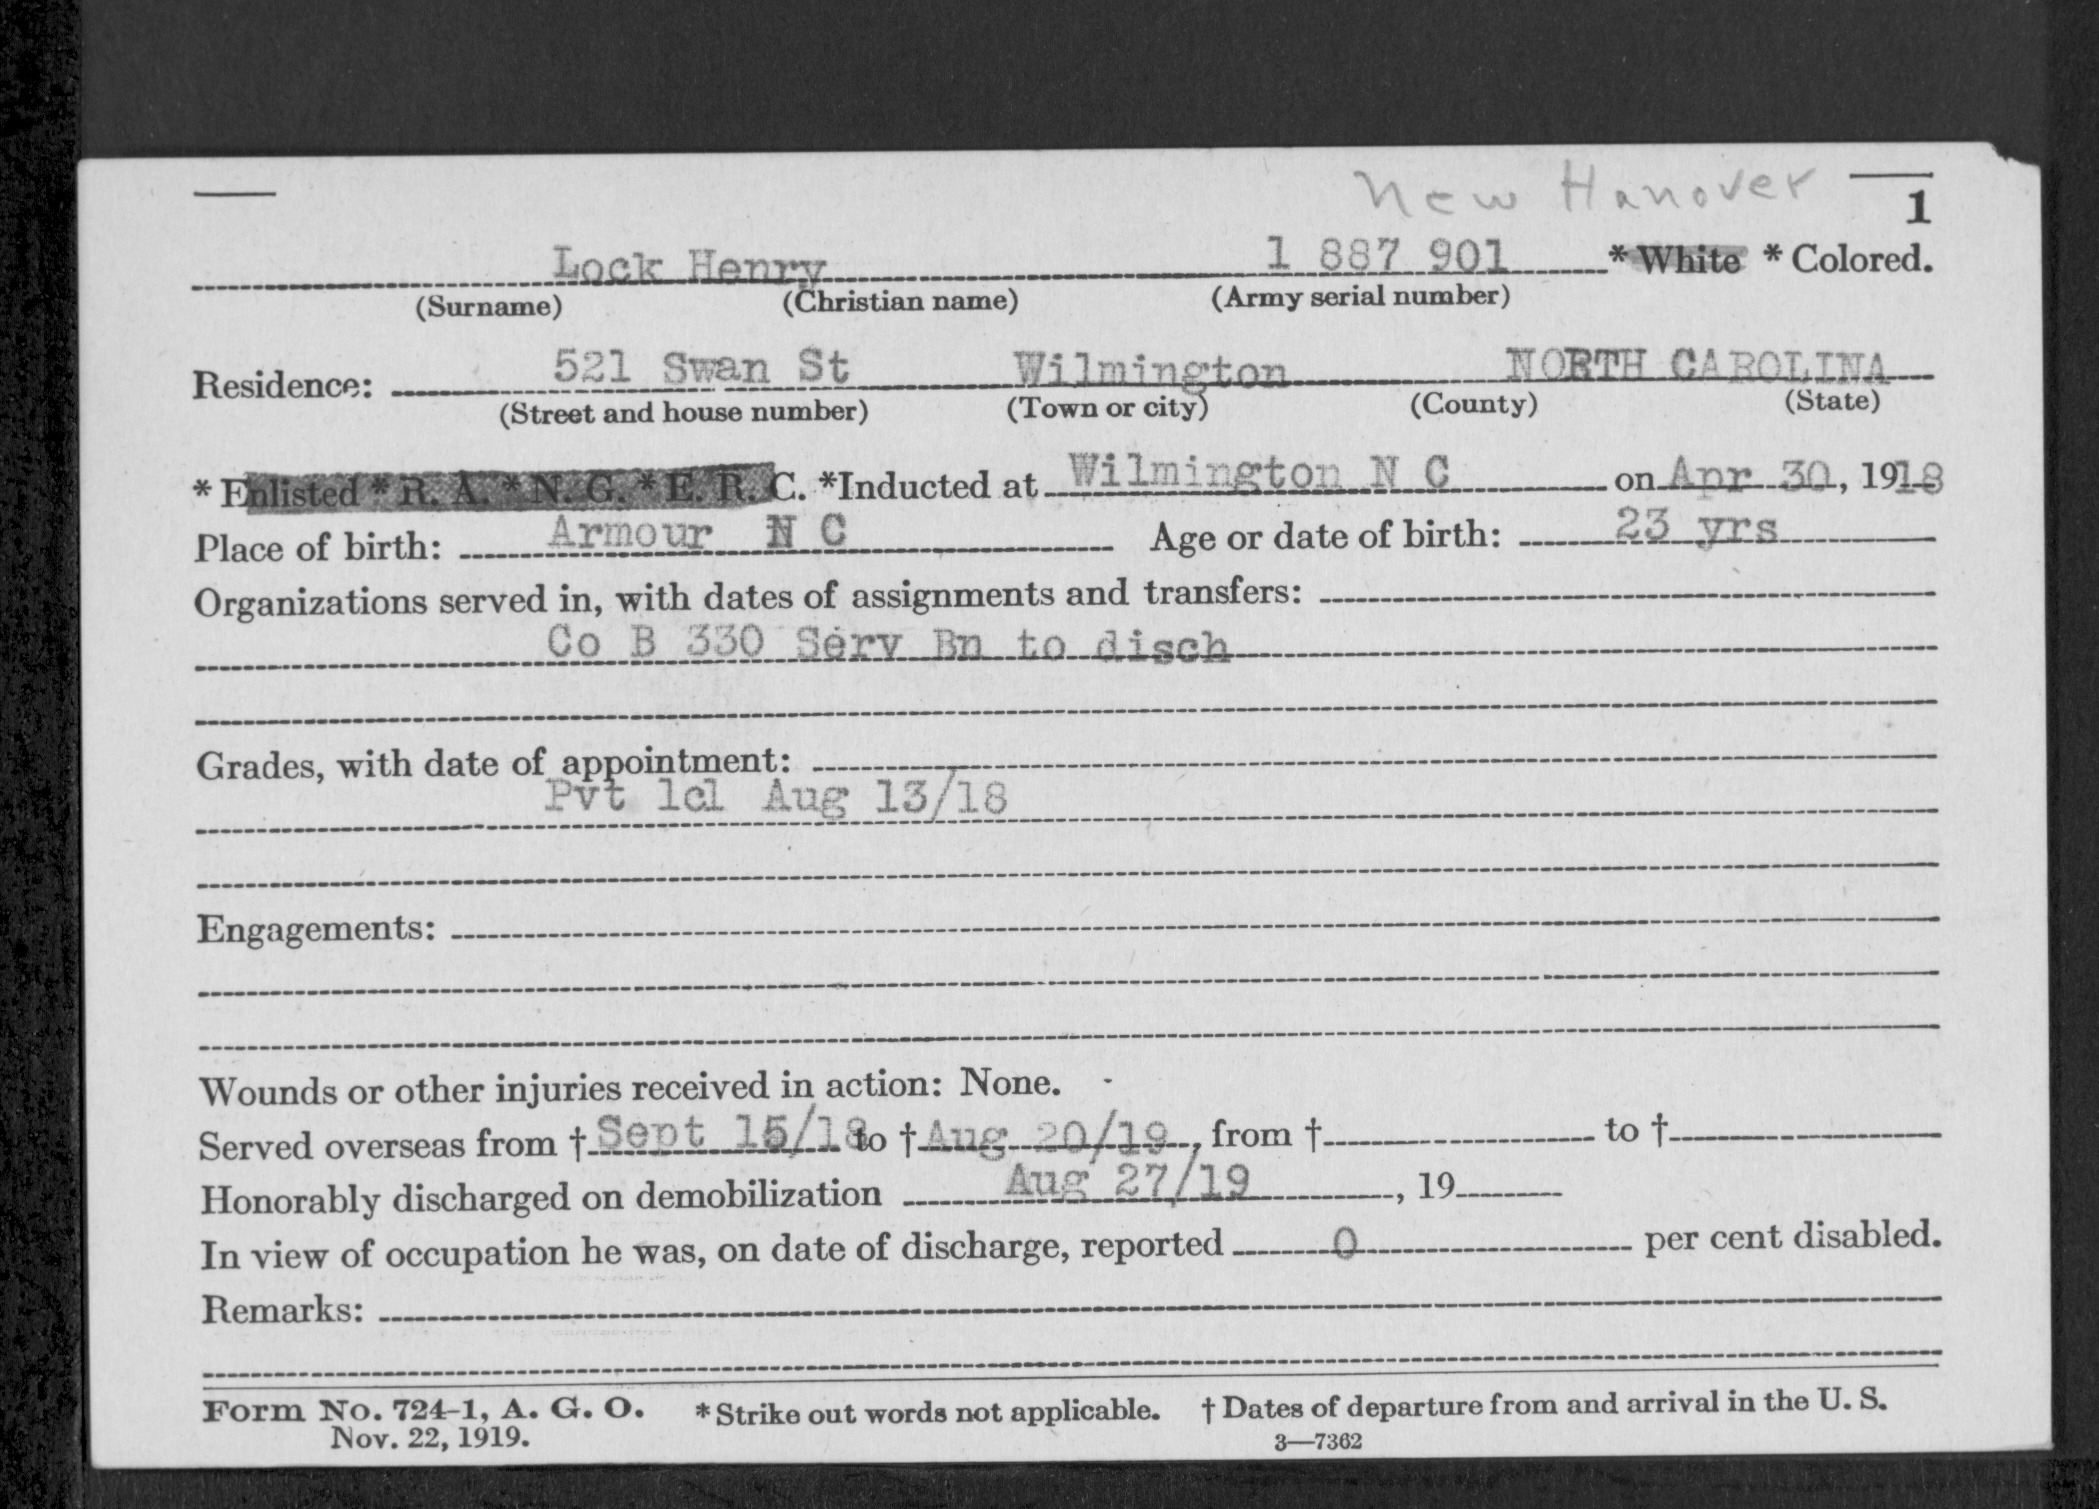 New Hanover
1
Lock Henry 1 887 901 * White * Colored.
(Surname) (Christian name) (Army serial number)
Residence: 521 Swan St Wilmington NORTH CAROLINA
(Street and house number) (Town or city) (County) (State)
* Enlisted * R. A. * N. G. * E. R. C. *Inducted at Wilmington N C on Apr 30, 1918
Place of birth: Armour N C Age or date of birth: 23 yrs
Organizations served in, with dates of assignments and transfers:
Co B 330 Serv Bn to disch
Grades, with date of appointment:
Pvt 1cl Aug 13/18
Engagements:
Wounds or other injuries received in action: None.
Served overseas from † Sept 15/18 to † Aug 20/19, from † to †
Honorably discharged on demobilization Aug 27/19, 19
In view of occupation he was, on date of discharge, reported 0 per cent disabled.
Remarks:
Form No. 724-1, A. G. O. * Strike out words not applicable. † Dates of departure from and arrival in the U. S.
Nov. 22, 1919. 3—7362